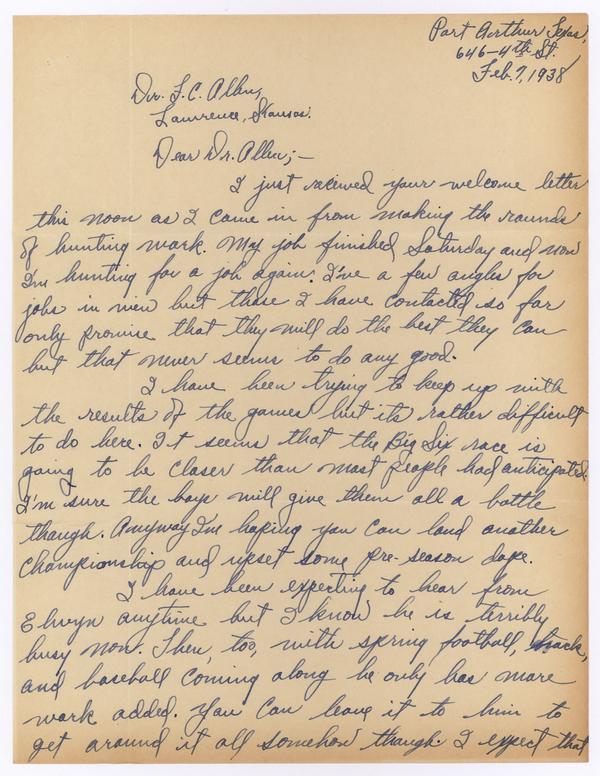 Port Arthur Texas,
646-4th St.
Feb. 7, 1938
Dr. F. C. Allen,
Lawrence, Kansas.
Dear Dr. Allen;—
I just received your welcome letter
this noon as I came in from making the rounds
of hunting work. My job finished Saturday and now
I'm hunting for a job again. I've a few angles for
jobs in view but those I have contacted so far
only promise that they will do the best they can
but that never seems to do any good.
I have been trying to keep up with
the results of the games but it's rather difficult
to do here. It seems that the Big Six race is
going to be closer than most people had anticipated.
I'm sure the boys will give them all a battle
though. Anyway I'm hoping you can land another
championship and upset some pre-season dope.
I have been expecting to hear from
Elwyn anytime but I know he is terribly
busy now. Then, too, with spring football, track,
and baseball coming along he only has more
work added. You can leave it to him to
get around it all somehow though. I expect that